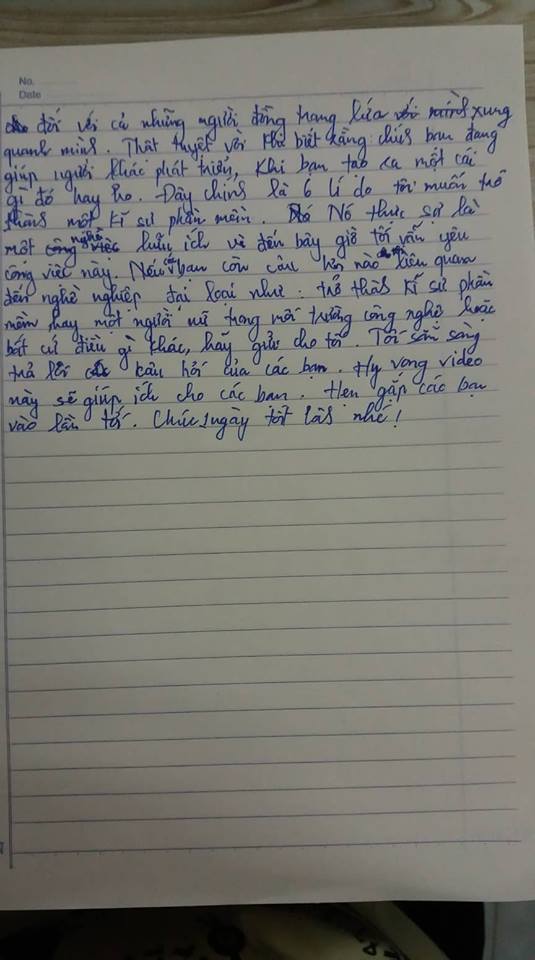 No.
Date
đối với cả những người đồng trang lứa xung
quanh mình. Thật tuyệt vời khi biết rằng chính bạn đang
giúp người khác phát triển, khi bạn tạo ra một cái
gì đó hay ho. Đây chính là 6 lí do tôi muốn trở
thành một kĩ sư phần mềm. Nó thực sự là
một nghề hữu ích và đến bây giờ tôi vẫn yêu
công việc này. Nếu các bạn còn câu hỏi nào liên quan
đến nghề nghiệp đại loại như: trở thành kĩ sư phần
mềm hay một người nữ trong môi trường công nghệ hoặc
bất cứ điều gì khác, hãy gửi cho tôi. Tôi sẵn sàng
trả lời câu hỏi của các bạn. Hy vọng video
này sẽ giúp ích cho các bạn. Hẹn gặp các bạn
vào lần tới. Chúc 1 ngày tốt lành nhé!